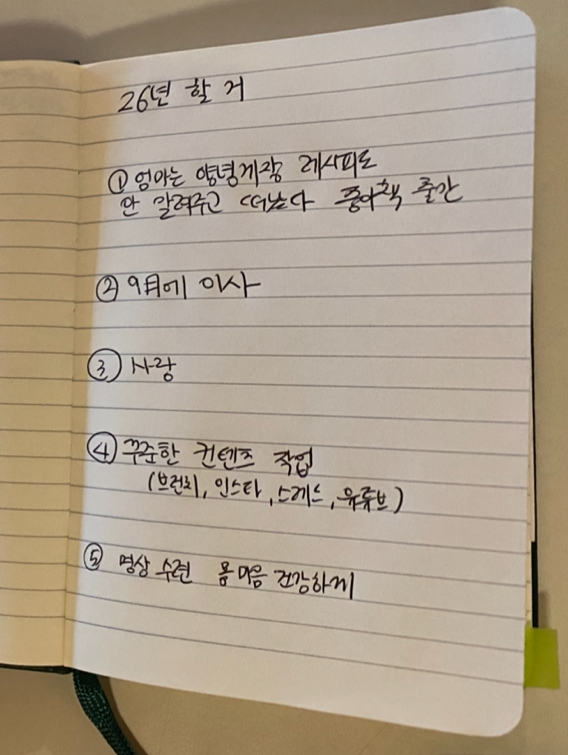 26년 할 거
① 엄마는 양념게장 레시피도
안 알려주고 떠났다 종이책 출간
② 9月에 이사
③ 사랑
④ 꾸준한 컨텐츠 작업
(브런치, 인스타, 스레드, 유튜브)
⑤ 명상 수련 몸 마음 건강하게